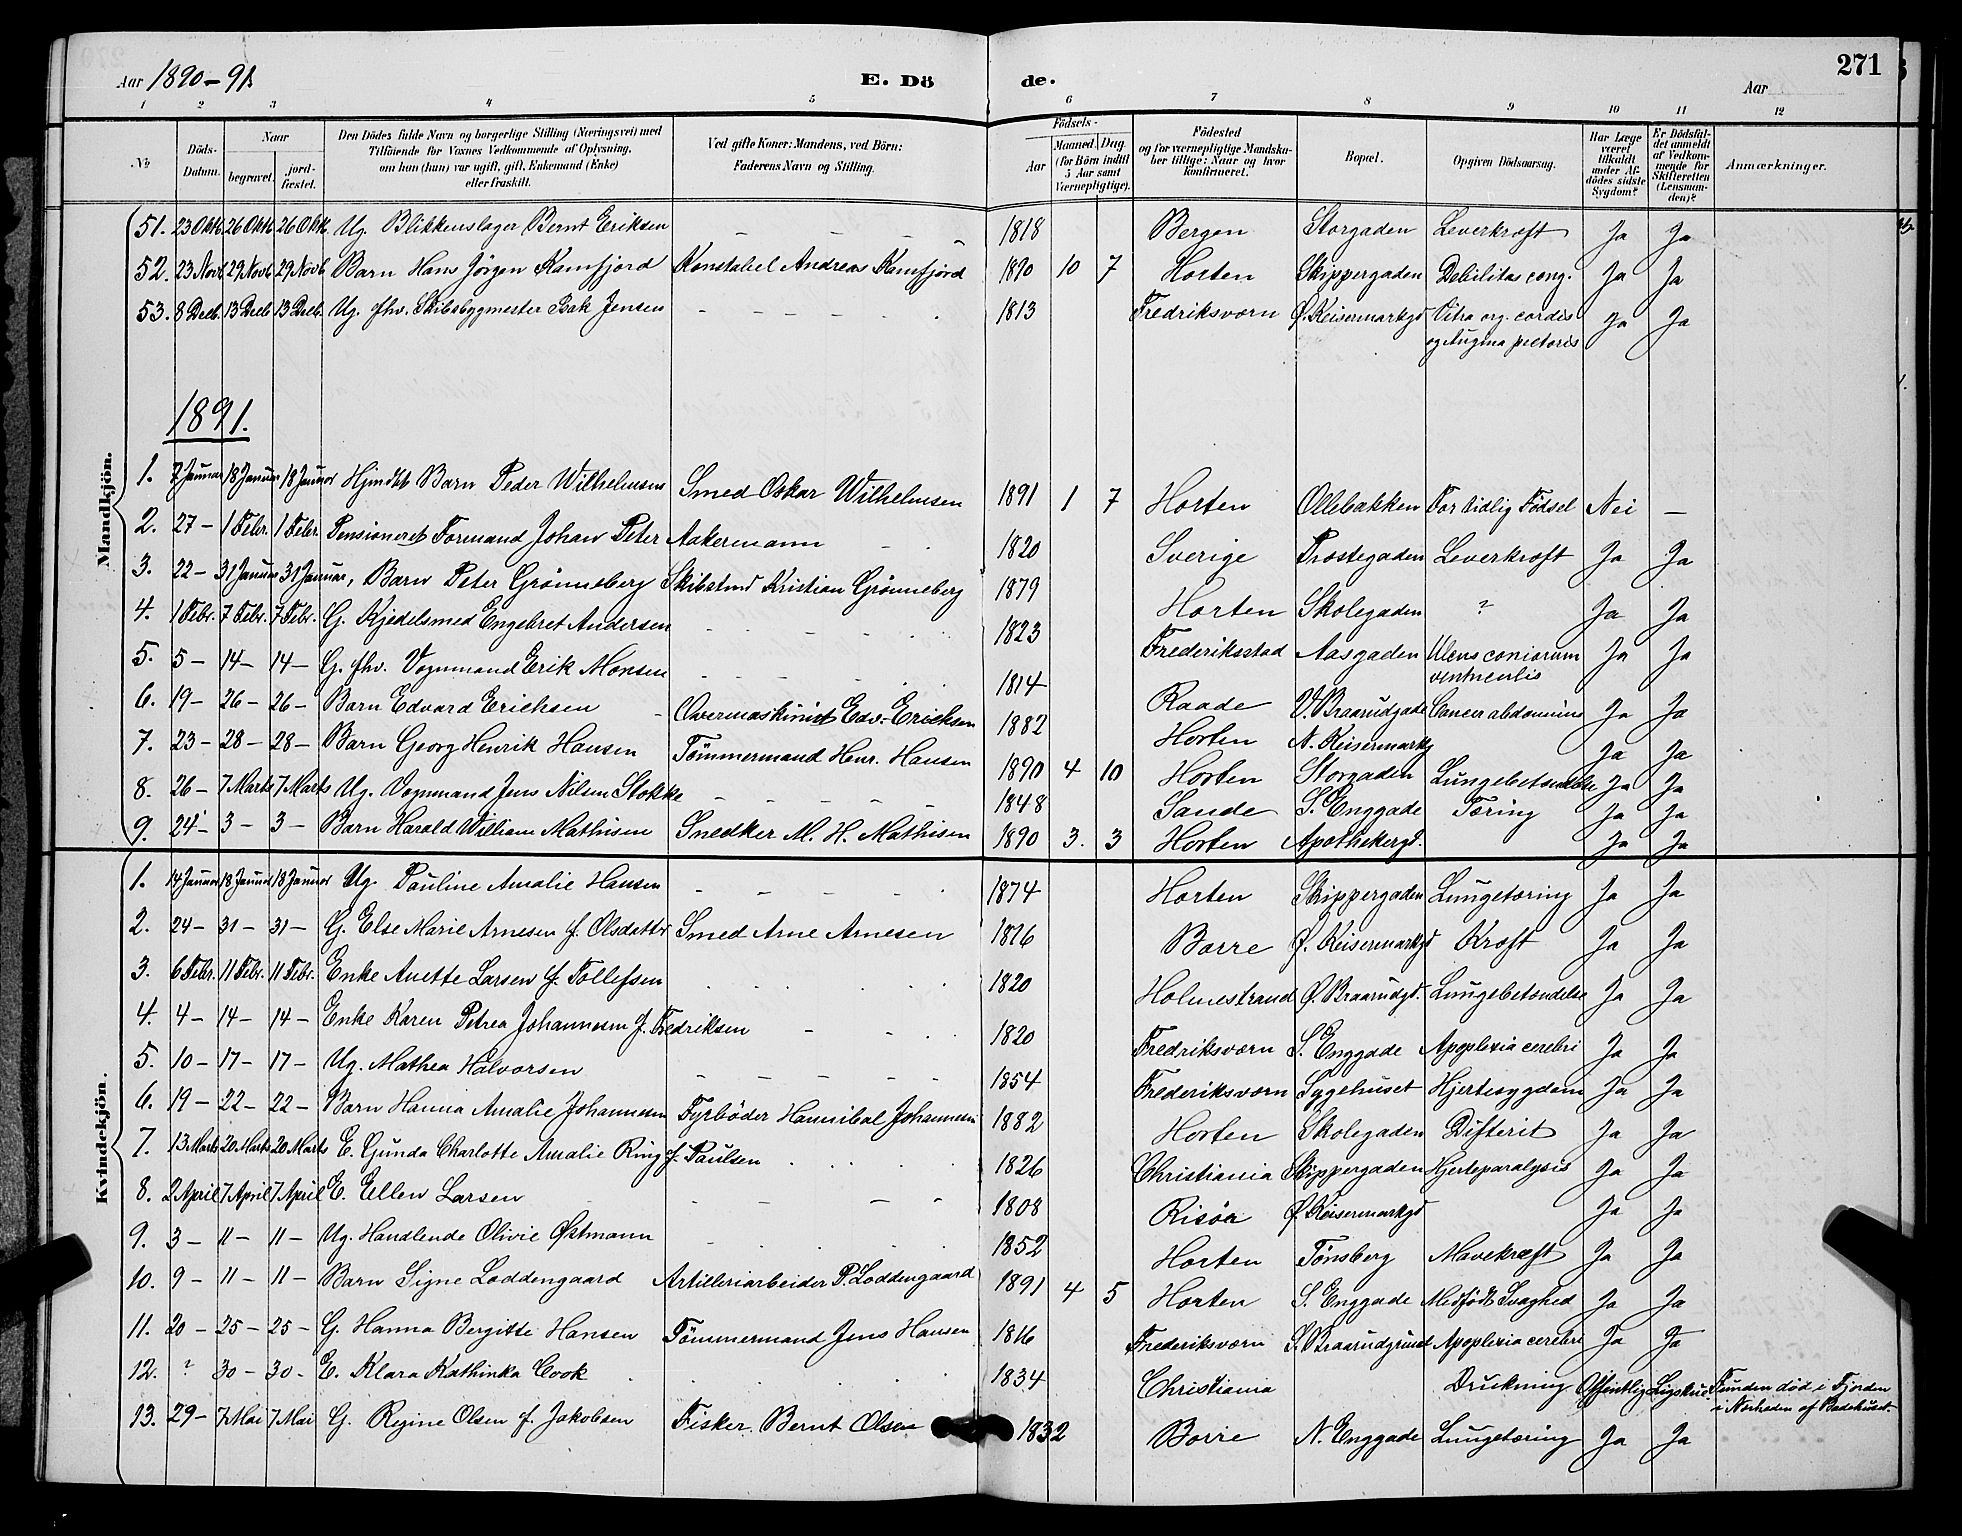 271
Aar 1890-91.
E. Dö de.
Aar
1 2 3 4 5 6 7 8 9 10 11 12
No
Döds-Datum.
Naar
begravet.
jord-fæstet.
Den Dödes fulde Navn og borgerlige Stilling (Næringsvei) med Tilföiende for Voxnes Vedkommende af Oplysning, om han (hun) var ugift, gift, Enkemand (Enke) eller fraskilt.
Ved gifte Koner: Mandens, ved Börn: Faderens Navn og Stilling.
Födsels-
Aar
Maaned. Dag
(for Börn indtil 5 Aar samt Værnepligtige).
Födested og for værnepligtige Mandskaber tillige: Naar og hvor konfirmeret.
Bopæl.
Opgiven Dödsaarsag.
Har Læge været tilkaldt under Afdödes sidste Sygdom?
Er Dödsfaldet anmeldt af Vedkommende for Skifteretten (Lensmanden)?
Anmærkninger.
Mandkjön.
51. 23 Okt. 26 Okt. 26 Okt. Ug. Blikkenslager Bernt Eriksen – – – – 1818 Bergen Storgaden Leverkræft Ja Ja
52. 23 Novb. 29 Novb. 29 Novb. Barn Hans Jörgen Kamfjord Konstabel Andreas Kamfjord 1890 10 7 Horten Skippergaden Debilitas cong. Ja Ja
53. 8 Decb. 13 Decb. 13 Decb. Ug. fhv. Skibsbygmester Isak Jensen – – – – 1813 Fredriksværn Ø. Keisermarkgd Vitia org. cordis Ja Ja
og Angina pectoris
1891.
1. 7 Januar 18 Januar 18 Januar Hjmdbt Barn Peder Wilhelmsen Smed Oskar Wilhelmsen 1891 1 7 Horten Ollebakken For tidlig Födsel Nei –
2. 27 – 1 Febr. 1 Febr. Pensioneret Formand Johan Peter Aakermann – – 1820 Sverige Prostegaden Leverkræft Ja Ja
3. 22 – 31 Januar 31 Januar, Barn Peter Grønneberg Skibstmd Kristian Grønneberg 1879 Horten Skolegaden ? Ja Ja
4. 1 Febr. 7 Febr. 7 Febr. G. Kjedelsmed Engebret Andersen – – – – 1823 Frederiksstad Aasgaden Ulcus Ja Ja
ventriculis
5. 5 – 14 – 14 – G. fhv. Vognmand Erik Monsen – – – – 1814 Raade V. Braarudgade Cancer abdominis Ja Ja
6. 19 – 26 – 26 – Barn Edvard Erichsen – Overmaskinist Edv. Erichsen 1882 Horten N. Keisermarkg Ja Ja
7. 23 – 28 – 28 – Barn Georg Henrik Hansen Tömmermand Henr. Hansen 1890 4 10 Horten Storgaden Lungebetændelse Ja Ja
8. 26 – 7 Marts 7 Marts Ug. Vognmand Jens Nilsen Stokke – – – – 1848 Sande S. Enggade Tæring Ja Ja
9. 24 – 3 – 3 – Barn Harald William Mathisen Snedker M. H. Mathisen 1890 3. 3 Horten Apothekergd. Ja Ja
Kvindekjön.
1. 14 Januar 18 Januar 18 Januar Ug. Pauline Amalie Hansen – – – – 1874 Horten Skippergaden Lungetæring Ja Ja
2. 24 – 31 – 31 – G. Else Marie Arnesen f. Olsdatter Smed Arne Arnesen 1816 Borre Ø. Keisermarkgd Kræft Ja Ja
3. 6 Febr. 11 Febr. 11 Febr. Enke Anette Larsen f. Tollefsen 1820 Holmestrand Ø. Braarudgd. Lungebetændelse Ja Ja
4. 4 – 14 – 14 – Enke Karen Petrea Johannesen f. Fredriksen – – 1820 Fredriksværn S. Enggade Apoplexia cerebri Ja Ja
5. 10 – 17 – 17 – Ug. Mathea Halvorsen – – – – – 1854 Frederiksværn Sygehuset Hjertesygdom Ja Ja
6. 19 – 22 – 22 – Barn Hanna Amalie Johannesen Fyrböder Hannibal Johannesen 1882 Horten Skolegaden Difterit Ja Ja
7. 13 Marts 20 Marts 20 Marts E. Gunda Charlotte Amalie Ring f. Paulsen 1826 Christiania Skippergaden Hjerteparalysis Ja Ja
8. 2 April 7 April 7 April E. Ellen Larsen – – – – 1808 Risör Ø. Keisermarkgd Ja Ja
9. 3 – 11 – 11 – Ug. Handlende Olivie Østmann 1852 Horten Tönsberg Mavekræft Ja Ja
10. 9 – 11 – 11 – Barn Signe Loddengaard Artilleriarbeider P. Loddengaard 1891 4 5 Horten S. Enggade Medfödt Svaghed Ja Ja
11. 20 – 25 – 25 – G. Hanna Bergitte Hansen Tömmermand Jens Hansen 1816 Frederiksværn S. Braarudgrund Apoplexia cerebri Ja Ja
12. ? 30 – 30 – E. Klara Kathinka Cook 1834 Christiania Drukning Offentlig Ligskue Funden död i Fjorden
i Nærheden af Badehuset.
13. 29 – 7 Mai 7 Mai G. Regine Olsen f. Jakobsen Fisker Bernt Olsen 1832 Borre N. Enggade Lungetæring Ja Ja